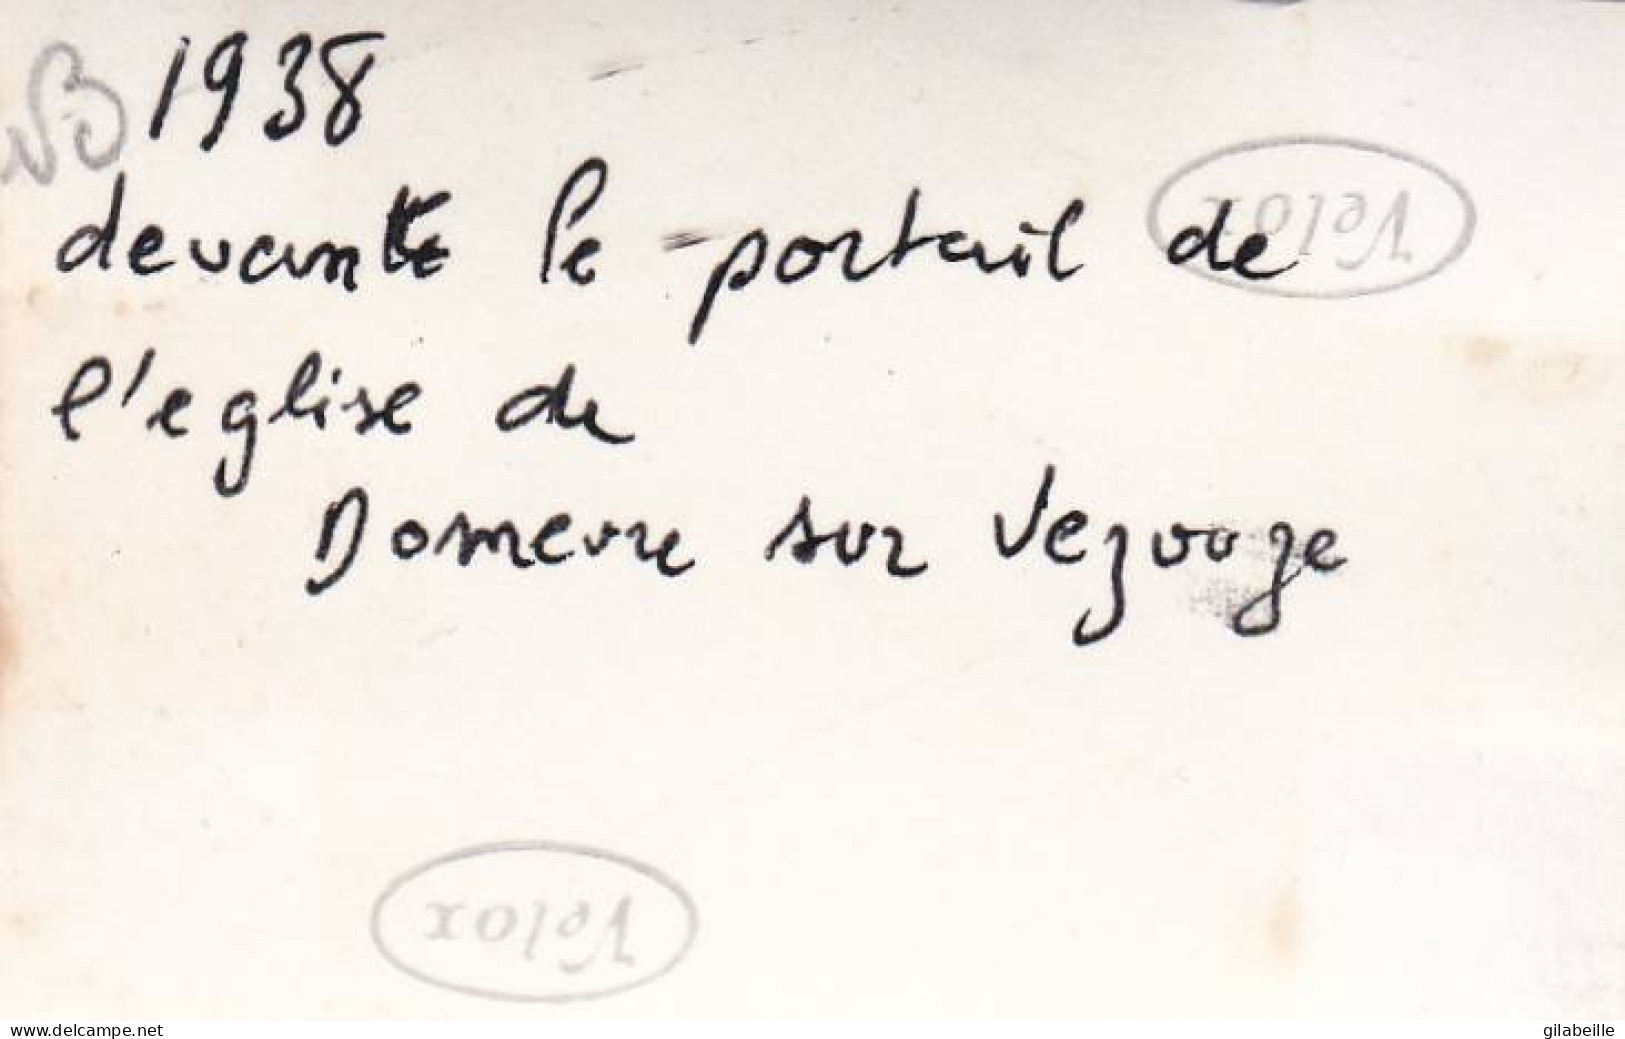 1938
devant le portail de
l'eglise de
Domevre sur Vezouze
Velox
Velox
www.delcampe.net
gilabeille